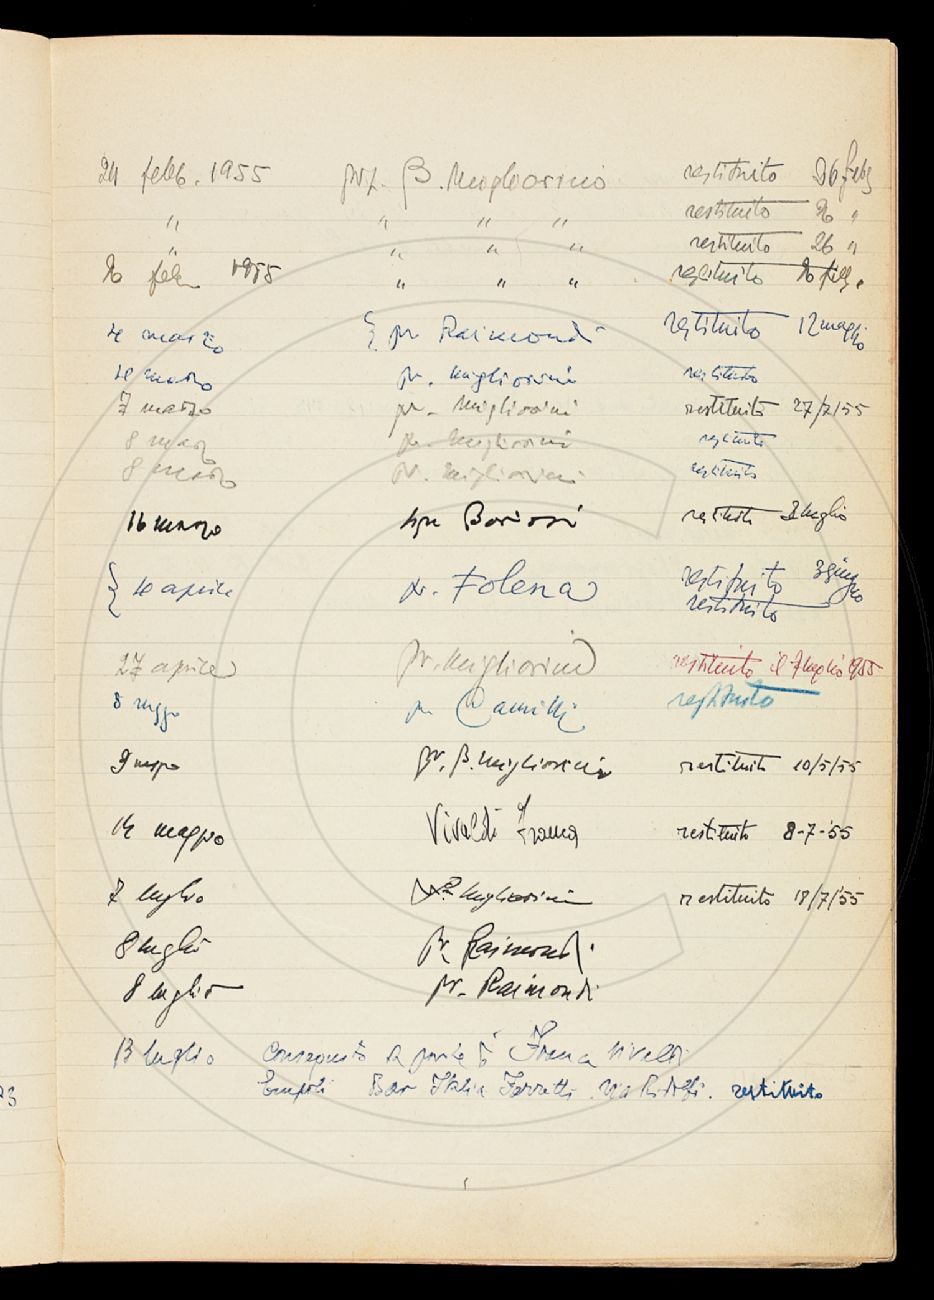 24 febb. 1955 prof. B. Migliorini restituito 26 febb
" " " " restituito 26 "
" " " " restituito 26 "
26 feb. 1955 " " " restituito 26 febb.
4 marzo { pr Raimondi restituito 12 maggio
4 marzo pr. Migliorini restituito
7 marzo pr. Migliorini restituito 27/7/55
8 marzo pr. Migliorini restituito
8 marzo pr. Migliorini restituito
16 marzo restituito luglio
{ aprile dr. Folena restituito 3 giugno
restituito
27 aprile pr. Migliorini restituito il 7 luglio 1955
8 maggio Camilli restituito
9 maggio pr. B. Migliorini restituito 10/5/55
14 maggio Vivaldi Franca restituito 8-7-55
7 luglio Migliorini restituito 18/7/55
8 luglio Pr Raimondi
8 luglio pr. Raimondi
13 luglio Consegnato da parte di Franca Vivaldi
Empoli Bar Italia Ferretti via Ridolfi. restituito